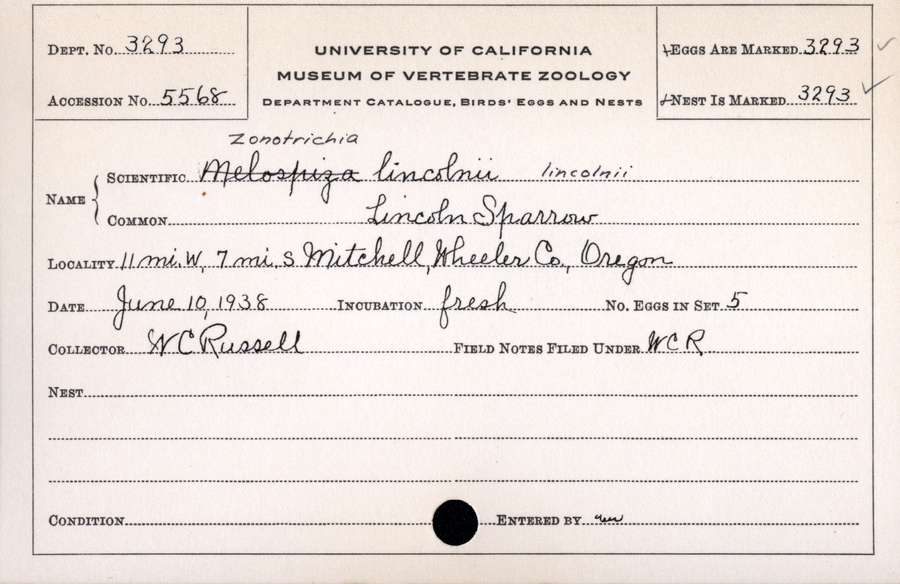 Dept. No. 3293
Accession No. 5568
UNIVERSITY OF CALIFORNIA
MUSEUM OF VERTEBRATE ZOOLOGY
Department Catalogue, Birds' Eggs and Nests
Eggs Are Marked 3293 ✓
Nest Is Marked 3293 ✓
Zonotrichia
Name { Scientific Melospiza lincolnii lincolnii
Common Lincoln Sparrow
Locality 11 mi. W, 7 mi. S Mitchell, Wheeler Co., Oregon
Date June 10, 1938 Incubation fresh No. Eggs in Set 5
Collector WCRussell Field Notes Filed Under WCR
Nest
Condition Entered by